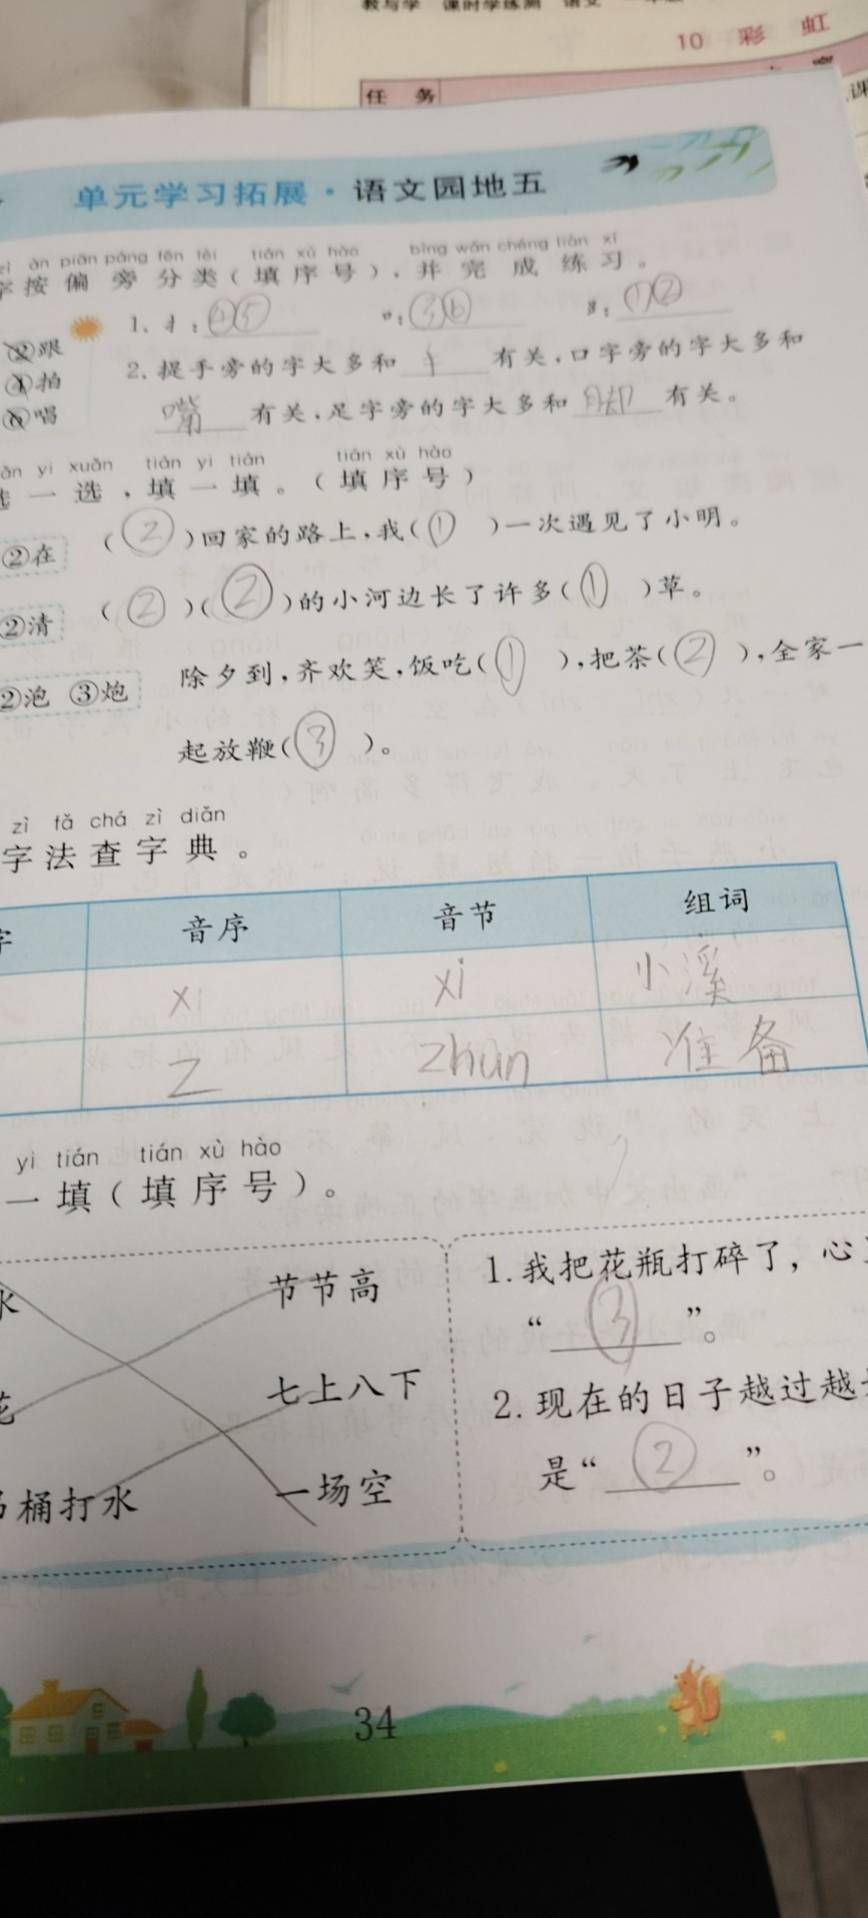 教与学 课时学练测 语文
10 彩虹
任务
单元学习拓展·语文园地五
àn piān páng fēn lèi tián xù hào bìng wán chéng liàn xí
字按偏旁分类(填序号),并完成练习。
1、扌: ④⑤ 口: ③⑥ ⻊: ①②
②跟
拍
⑥唱
2、提手旁的字大多和 手 有关,口字旁的字大多和
嘴 有关,足字旁的字大多和 脚 有关。
yi xuǎn tián yi tián tián xù hào
选一选,填一填。(填序号)
②在 (②)回家的路上,我(①)一次遇见了小明。
②清 (②)(②)的小河边长了许多(①)草。
②泡 ③炮 除夕到,齐欢笑,饭吃(①),把茶(②),全家一
起放鞭(③)。
zì fǎ chá zì diǎn
字法查字典。
字 音序 音节 组词
X xī 小溪
Z zhǔn 准备
yi tián tián xù hào
一填(填序号)。
水 节节高
花 七上八下
桶打水 一场空
1.我把花瓶打碎了,心
“ ③ ”。
2.现在的日子越过越
是“ ② ”。
34